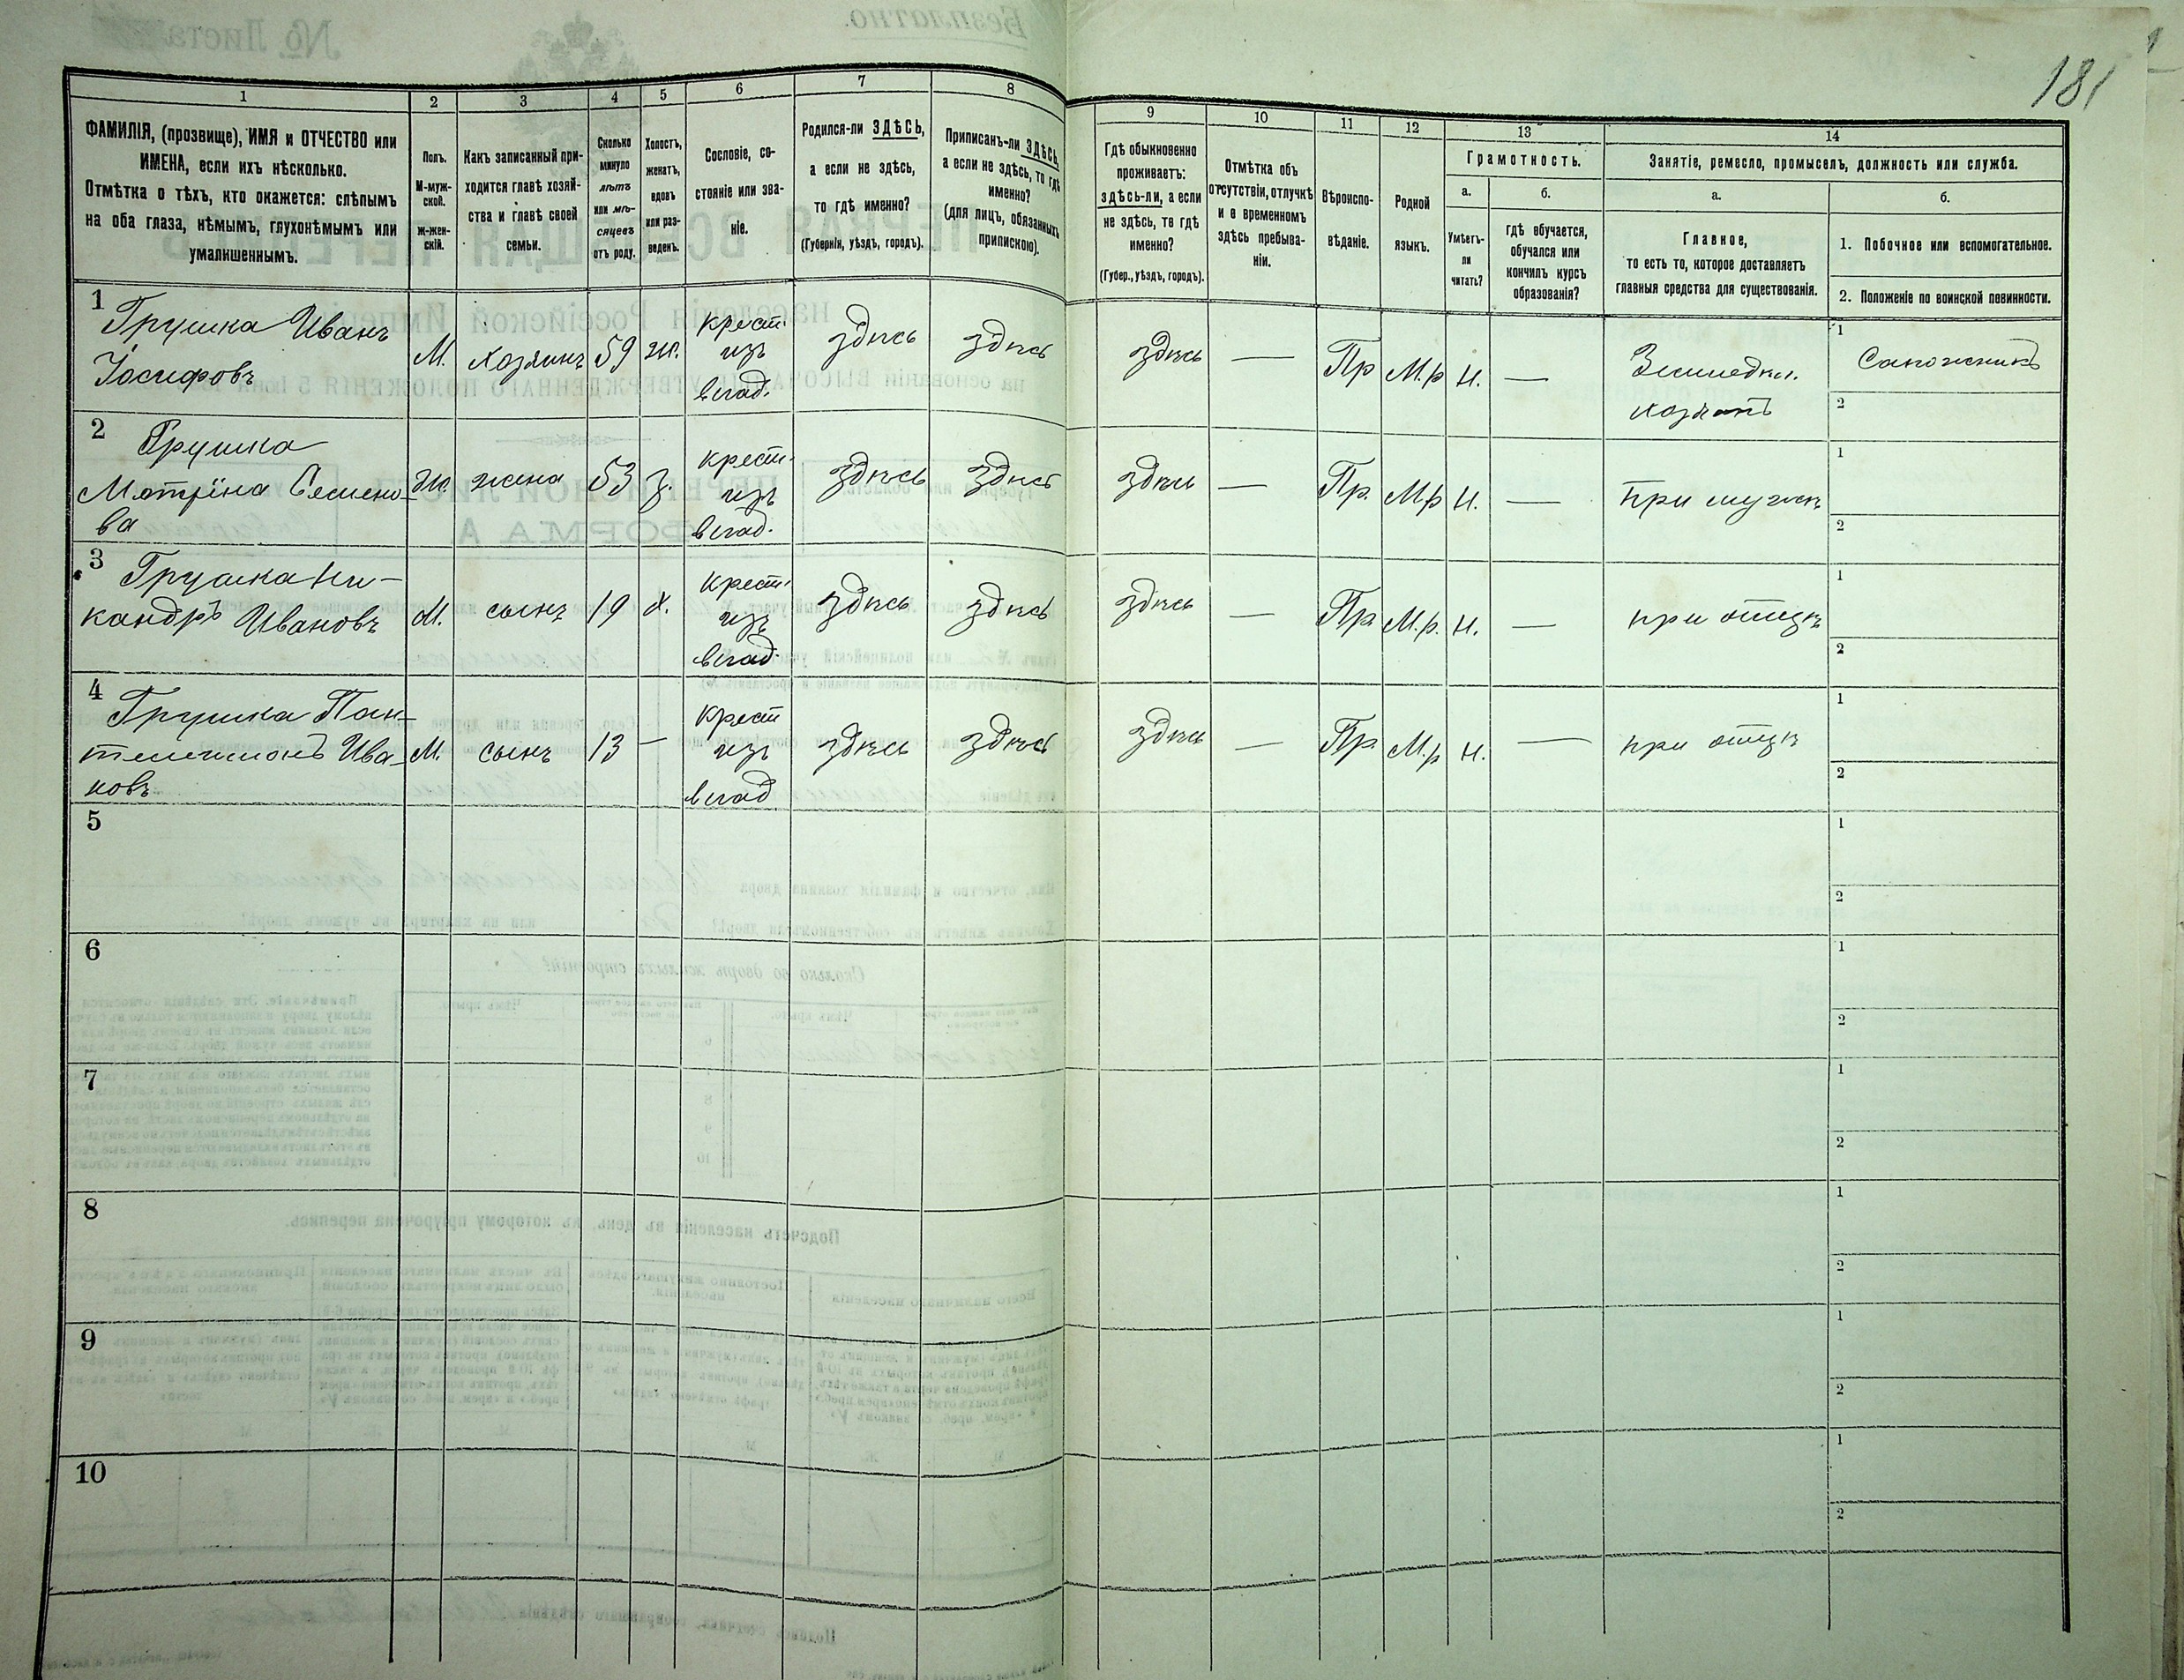 181
1 2 3 4 5 6 7 8 9 10 11 12 13 14
ФАМИЛІЯ, (прозвище), ИМЯ и ОТЧЕСТВО или
ИМЕНА, если ихъ нѣсколько.
Отмѣтка о тѣхъ, кто окажется: слѣпымъ
на оба глаза, нѣмымъ, глухонѣмымъ или
умалишеннымъ.
Полъ.
М-муж-
ской.
ж-жен-
скій.
Какъ записанный при-
ходится главѣ хозяй-
ства и главѣ своей
семьи.
Сколько
минуло
лѣтъ
или мѣ-
сяцевъ
отъ роду.
Холостъ,
женатъ,
вдовъ
или раз-
веденъ.
Сословіе, со-
стояніе или зва-
ніе.
Родился-ли ЗДѢСЬ,
а если не здѣсь,
то гдѣ именно?
(Губернія, уѣздъ, городъ).
Приписанъ-ли ЗДѢСЬ,
а если не здѣсь, то гдѣ
именно?
(для лицъ, обязанныхъ
припискою).
Гдѣ обыкновенно
проживаетъ:
здѣсь-ли, а если
не здѣсь, то гдѣ
именно?
(Губер., уѣздъ, городъ).
Отмѣтка объ
отсутствіи, отлучкѣ
и о временномъ
здѣсь пребыва-
ніи.
Вѣроиспо-
вѣданіе.
Родной
языкъ.
Грамотность.
а.
Умѣетъ-
ли
читать?
б.
гдѣ обучается,
обучался или
кончилъ курсъ
образованія?
Занятіе, ремесло, промыселъ, должность или служба.
а.
Главное,
то есть то, которое доставляетъ
главныя средства для существованія.
б.
1. Побочное или вспомогательное.
2. Положеніе по воинской повинности.
1 Грушка Иванъ
Іосифовъ
М. хозяинъ 59 ж. крест. изъ влад. здѣсь здѣсь здѣсь — Пр М.р н. — Земледѣл. хозяинъ 1 Сапожникъ
2
2 Грушка
Матрёна Семено-
ва
ж. жена 53 з. крест. изъ влад. здѣсь здѣсь здѣсь — Пр. М.р н. — при мужѣ 1
2
3 Грушка Ни-
кандръ Ивановъ
М. сынъ 19 х. крест. изъ влад. здѣсь здѣсь здѣсь — Пр. М.р. н. — при отцѣ 1
2
4 Грушка Пан-
телеимонъ Ива-
новъ
М. сынъ 13 — крест изъ влад здѣсь здѣсь здѣсь — Пр. М.р н. — при отцѣ 1
2
5 1
2
6 1
2
7 1
2
8 1
2
9 1
2
10 1
2